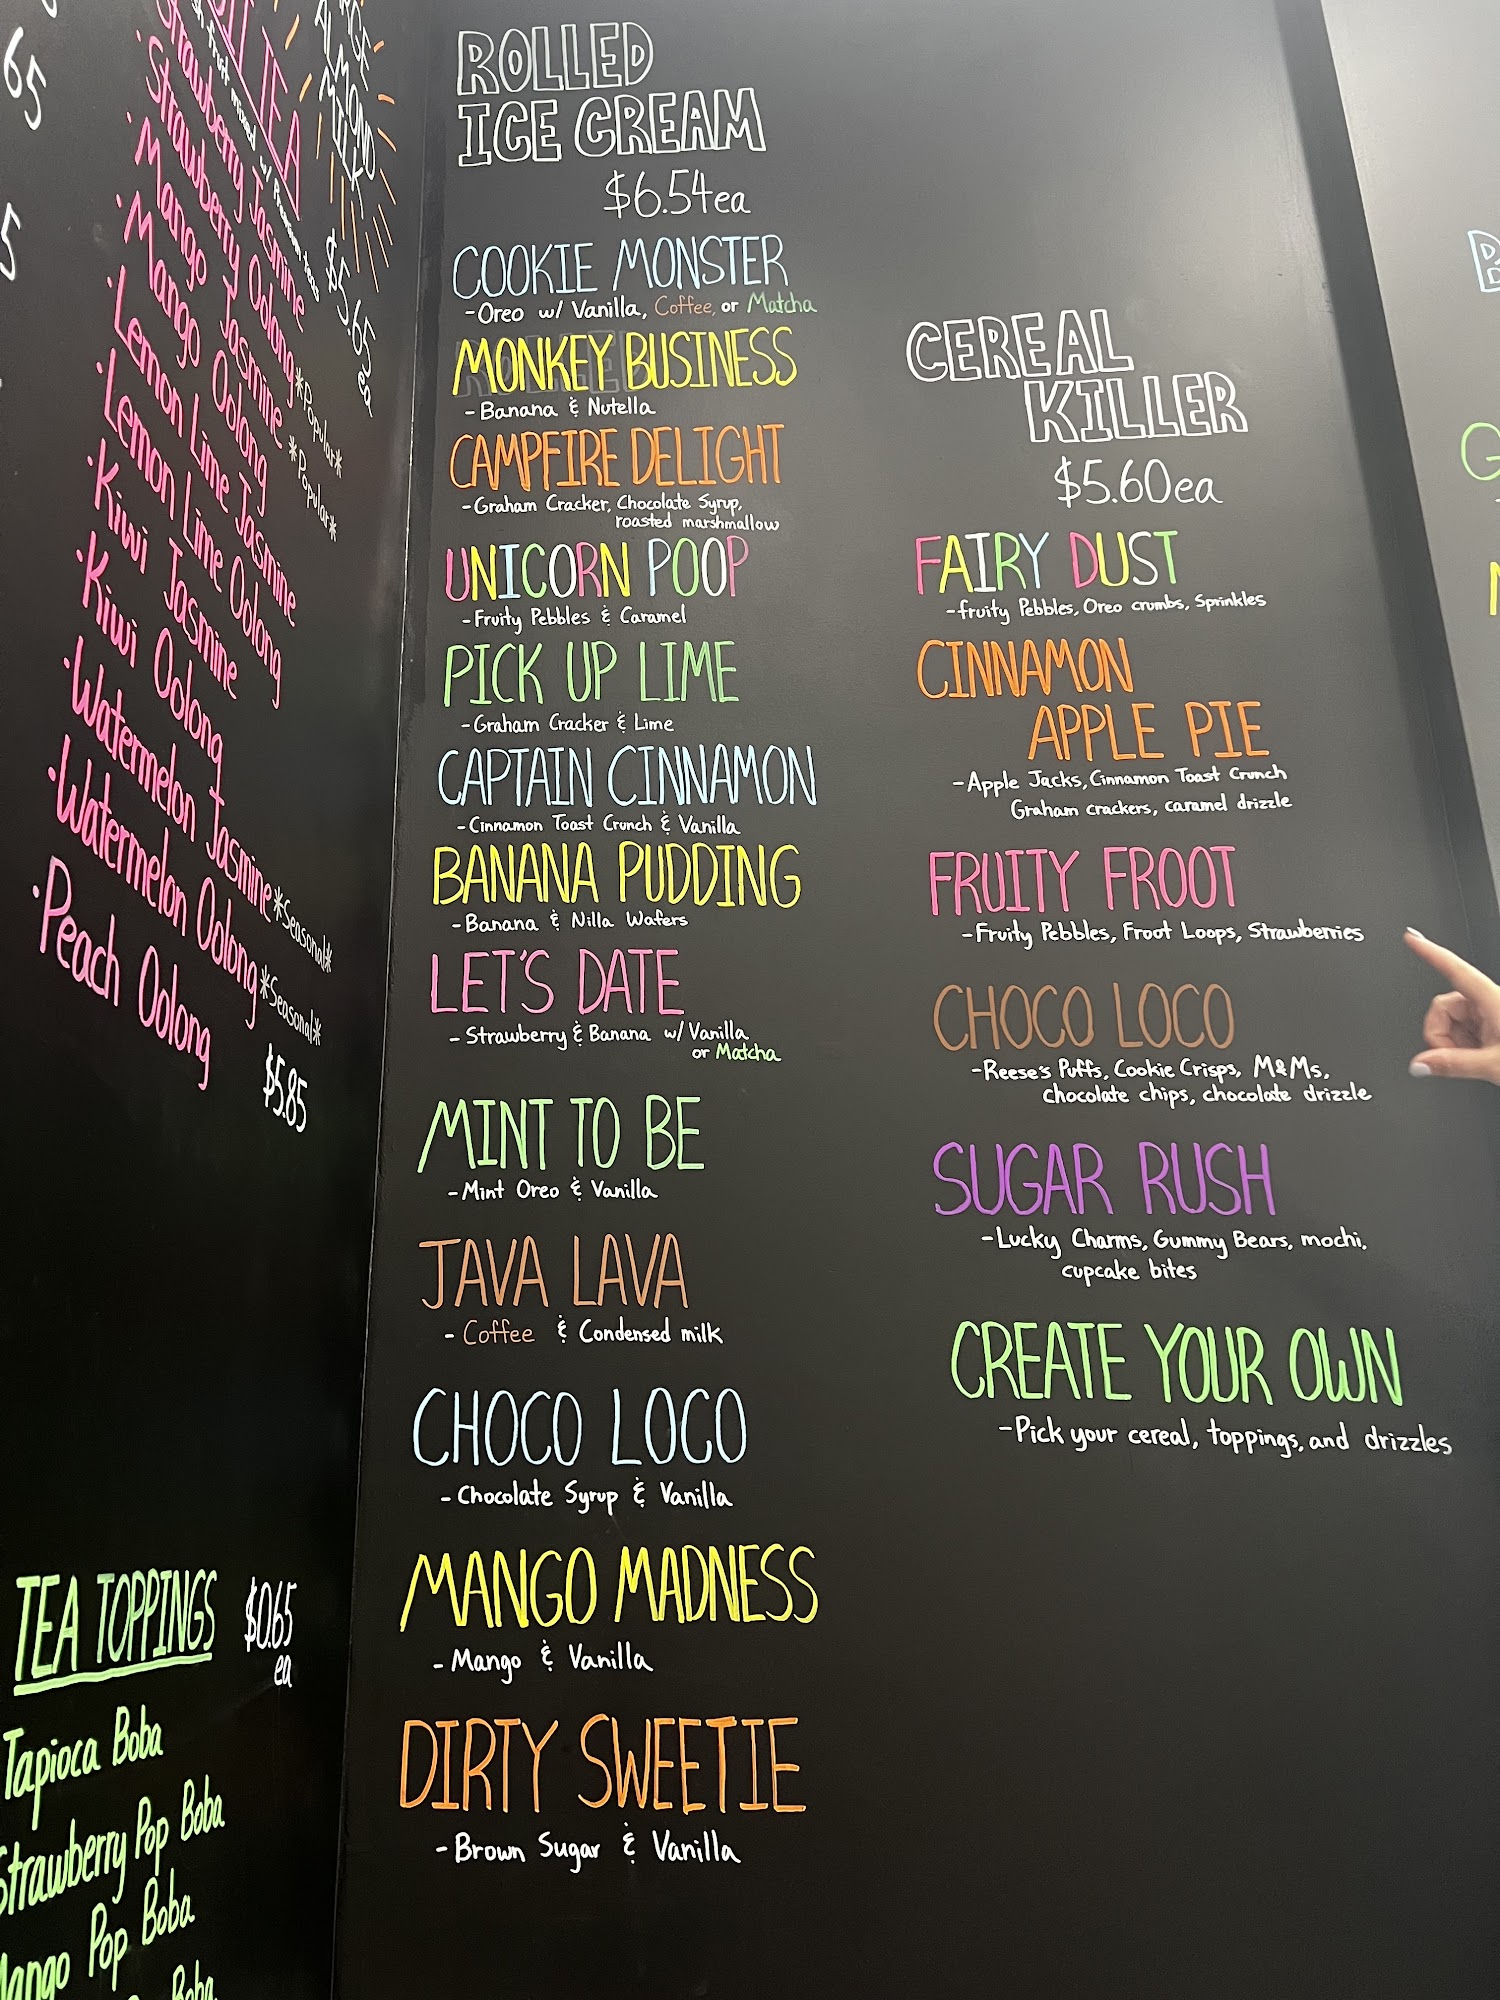 65
5
FRUIT TEA
LARGE
ALMOND
MILK
$5.65
ea
Strawberry Jasmine
· Strawberry Oolong *Popular*
· Mango Jasmine *Popular*
· Mango Oolong
· Lemon Lime Jasmine
· Lemon Lime Oolong
· Kiwi Jasmine
· Kiwi Oolong
· Watermelon Jasmine *Seasonal*
· Watermelon Oolong *Seasonal*
· Peach Oolong
$5.85
TEA TOPPINGS $0.65
ea
Tapioca Boba
Strawberry Pop Boba
Mango Pop Boba
Boba
ROLLED
ICE CREAM
$6.54ea
COOKIE MONSTER
- Oreo w/ Vanilla, Coffee, or Matcha
MONKEY BUSINESS
- Banana & Nutella
CAMPFIRE DELIGHT
- Graham Cracker, Chocolate Syrup,
roasted marshmallow
UNICORN POOP
- Fruity Pebbles & Caramel
PICK UP LIME
- Graham Cracker & Lime
CAPTAIN CINNAMON
- Cinnamon Toast Crunch & Vanilla
BANANA PUDDING
- Banana & Nilla Wafers
LET'S DATE
- Strawberry & Banana w/ Vanilla
or Matcha
MINT TO BE
- Mint Oreo & Vanilla
JAVA LAVA
- Coffee & Condensed milk
CHOCO LOCO
- Chocolate Syrup & Vanilla
MANGO MADNESS
- Mango & Vanilla
DIRTY SWEETIE
- Brown Sugar & Vanilla
CEREAL
KILLER
$5.60ea
FAIRY DUST
- fruity Pebbles, Oreo crumbs, Sprinkles
CINNAMON
APPLE PIE
- Apple Jacks, Cinnamon Toast Crunch
Graham crackers, caramel drizzle
FRUITY FROOT
- Fruity Pebbles, Froot Loops, Strawberries
CHOCO LOCO
- Reese's Puffs, Cookie Crisps, M&Ms,
chocolate chips, chocolate drizzle
SUGAR RUSH
- Lucky Charms, Gummy Bears, mochi,
cupcake bites
CREATE YOUR OWN
- Pick your cereal, toppings, and drizzles